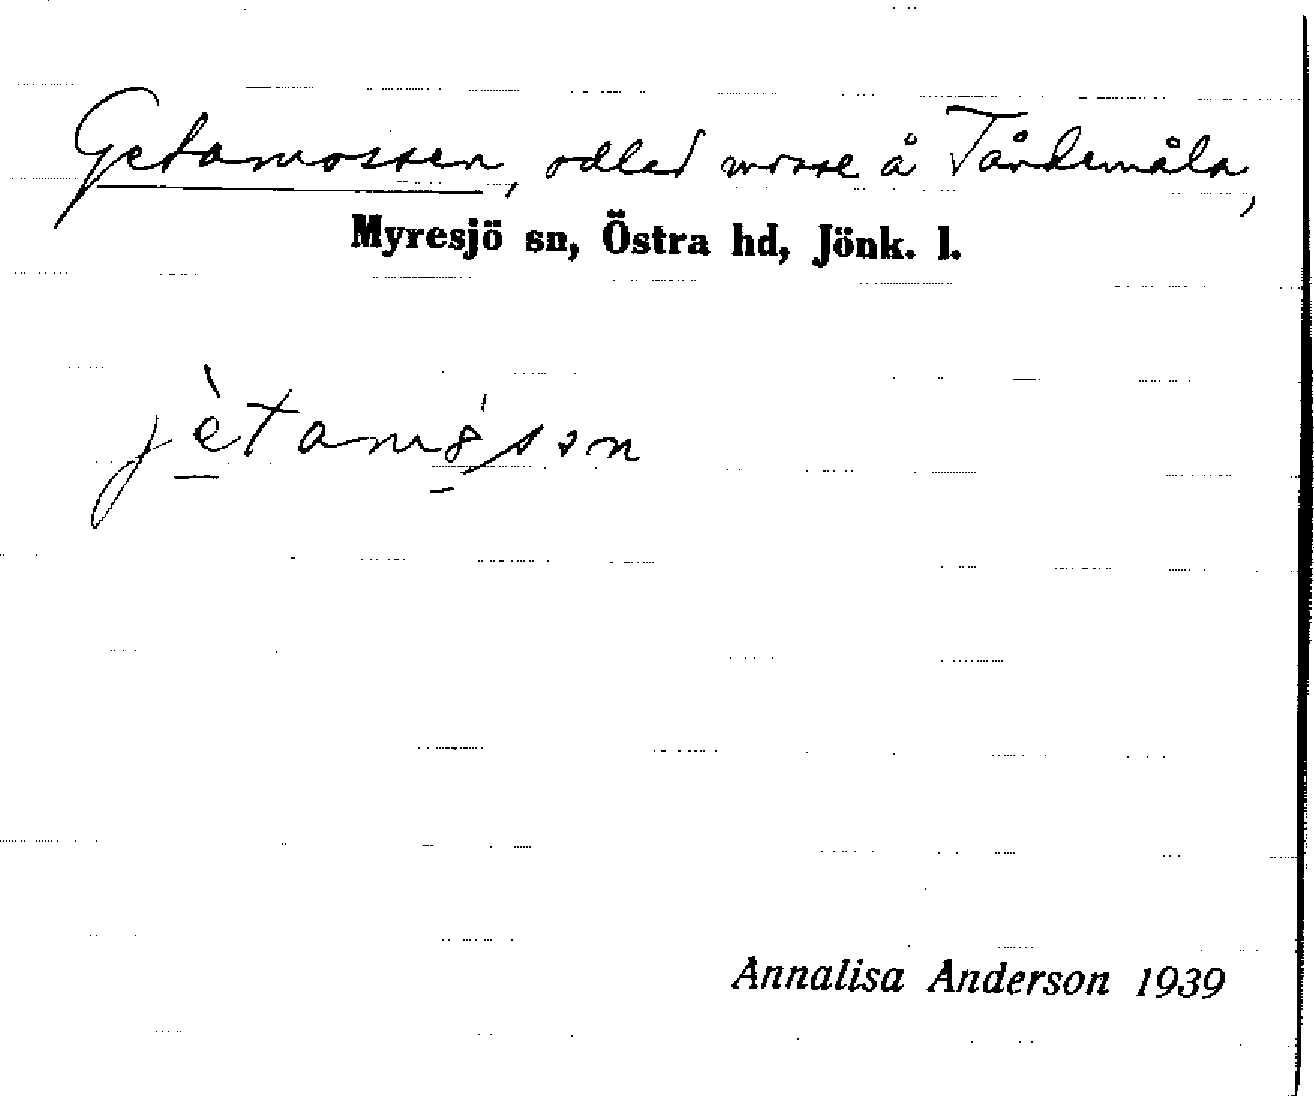 Getamossen, odlad mosse å Tårdemåla,
Myresjö sn, Östra hd, Jönk. l.
jètamósən
Annalisa Anderson 1939